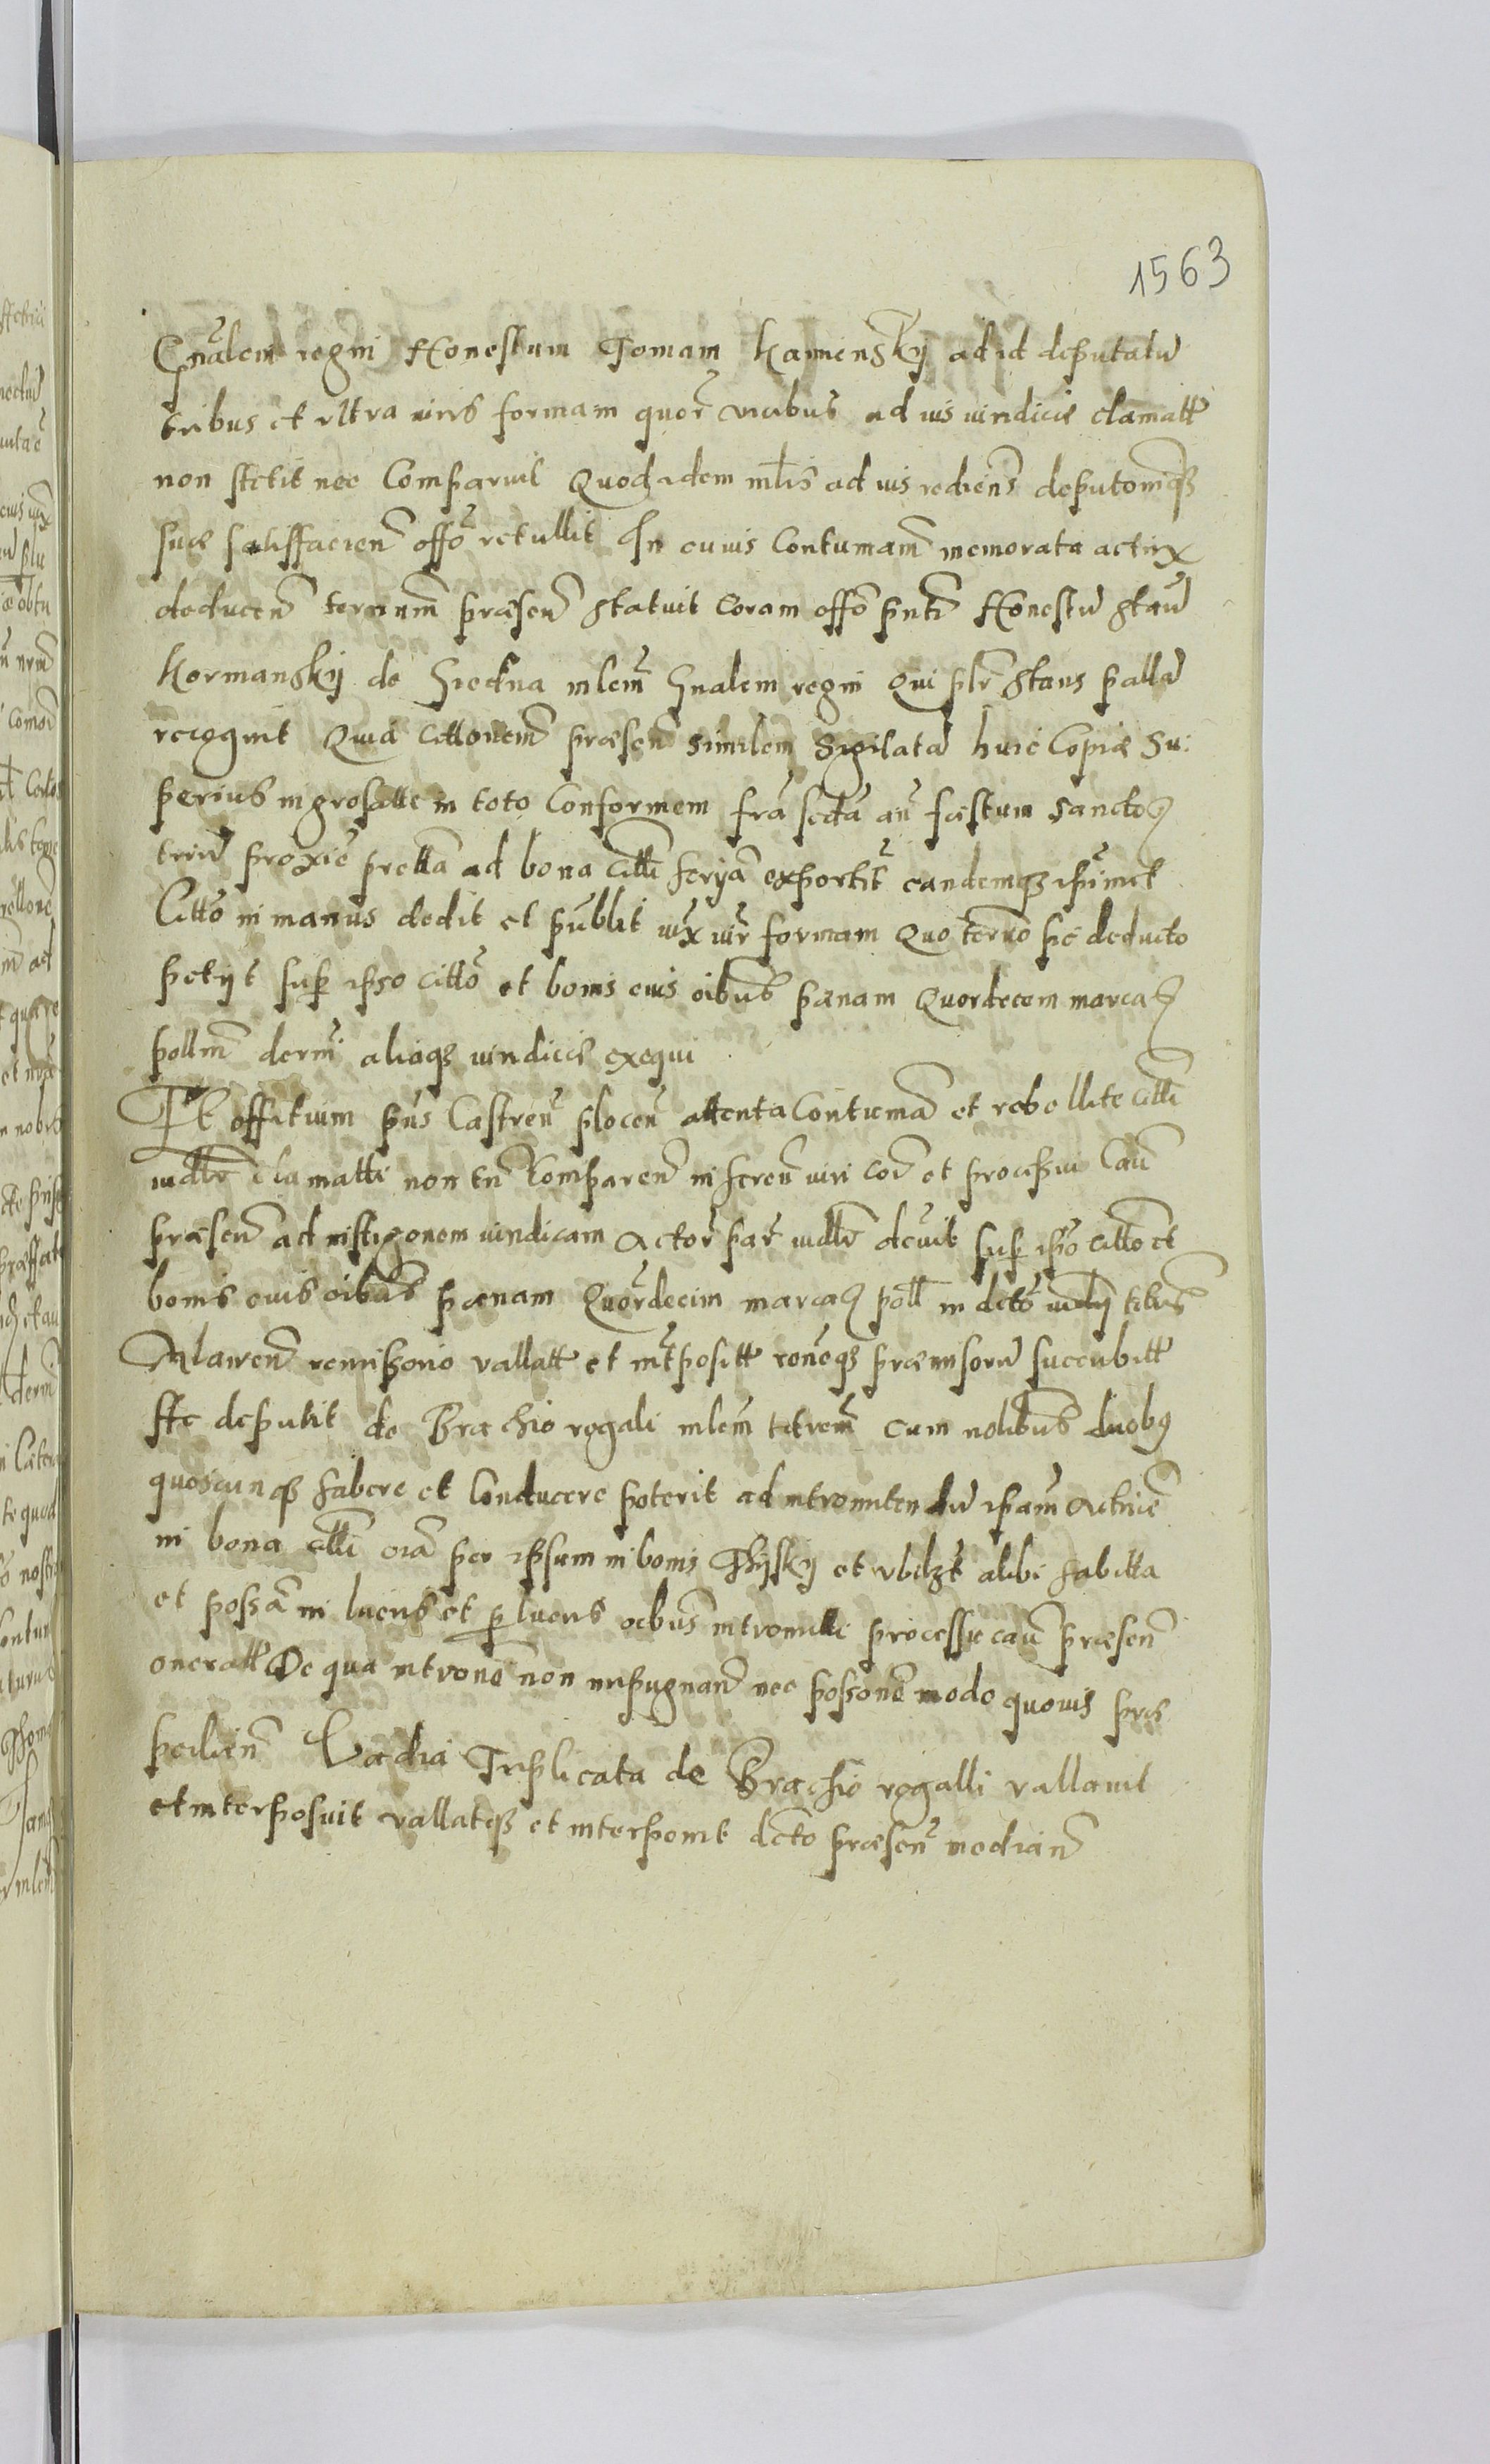 1563
Gnalem regni Honestum Tomam Kamensky ad id deputatu
tribus et ultra iuris formam quor vicibus ad ius iudiciae clamatt
non stetit nec Comparuit Quod idem mlis ad ius rediens deputoniq
suae satisfacien offo retullit In cuius Contumam memorata actrix
deducen terminm praesen statuit Coram offo pnti Honestu Stau
Kormansky de Siecina mlem Gnalem regni Qui plr stans palla
recognit Quia Cittonem praesen similem Sigilata huic Copiae Su:
perius ingrosatte in toto Conformem fra secta an festum Sancto
triu proxie prettta ad bona Citti feryta exportit eandemq
Citto in manus dedit et publit iux iur formam Quo termo sic deducto
petyt sup ipso Citto et bonis eius oibus paenam Quordecem marca
pollm decrni aliaq iudiciae exequi
Et offitium pns Castren plocen attenta Contuma et rebellite Citti
iudlr clamatti non tn Comparen inferen viri Cor et procipui Cau
praesen ad instigonem iudicam Actor par iudlr decuit sup ipso Citto et
bonis eius oibus paenam Quordecim marca poll in deto
Mlawen remissorio vallatt et intpositt roneq praemissoru succubitt
ste deputit de Brachio regali mlem tetrem cum nolibus duob
quoscunq habere et Conducere poterit ad intromitendu ipam Actrice
in bona Citti oia per ipsum in bonis et ubilzt alibi habitta
et possa in lucris et p lucris oibus intromitti processu cau praesen
oneratt De qua introne non impugnan nec possone modo quouis prae
pedien Vadia Triplicata de Brachio regalli vallauit
et interposuit vallatq et interponit deto praesen median